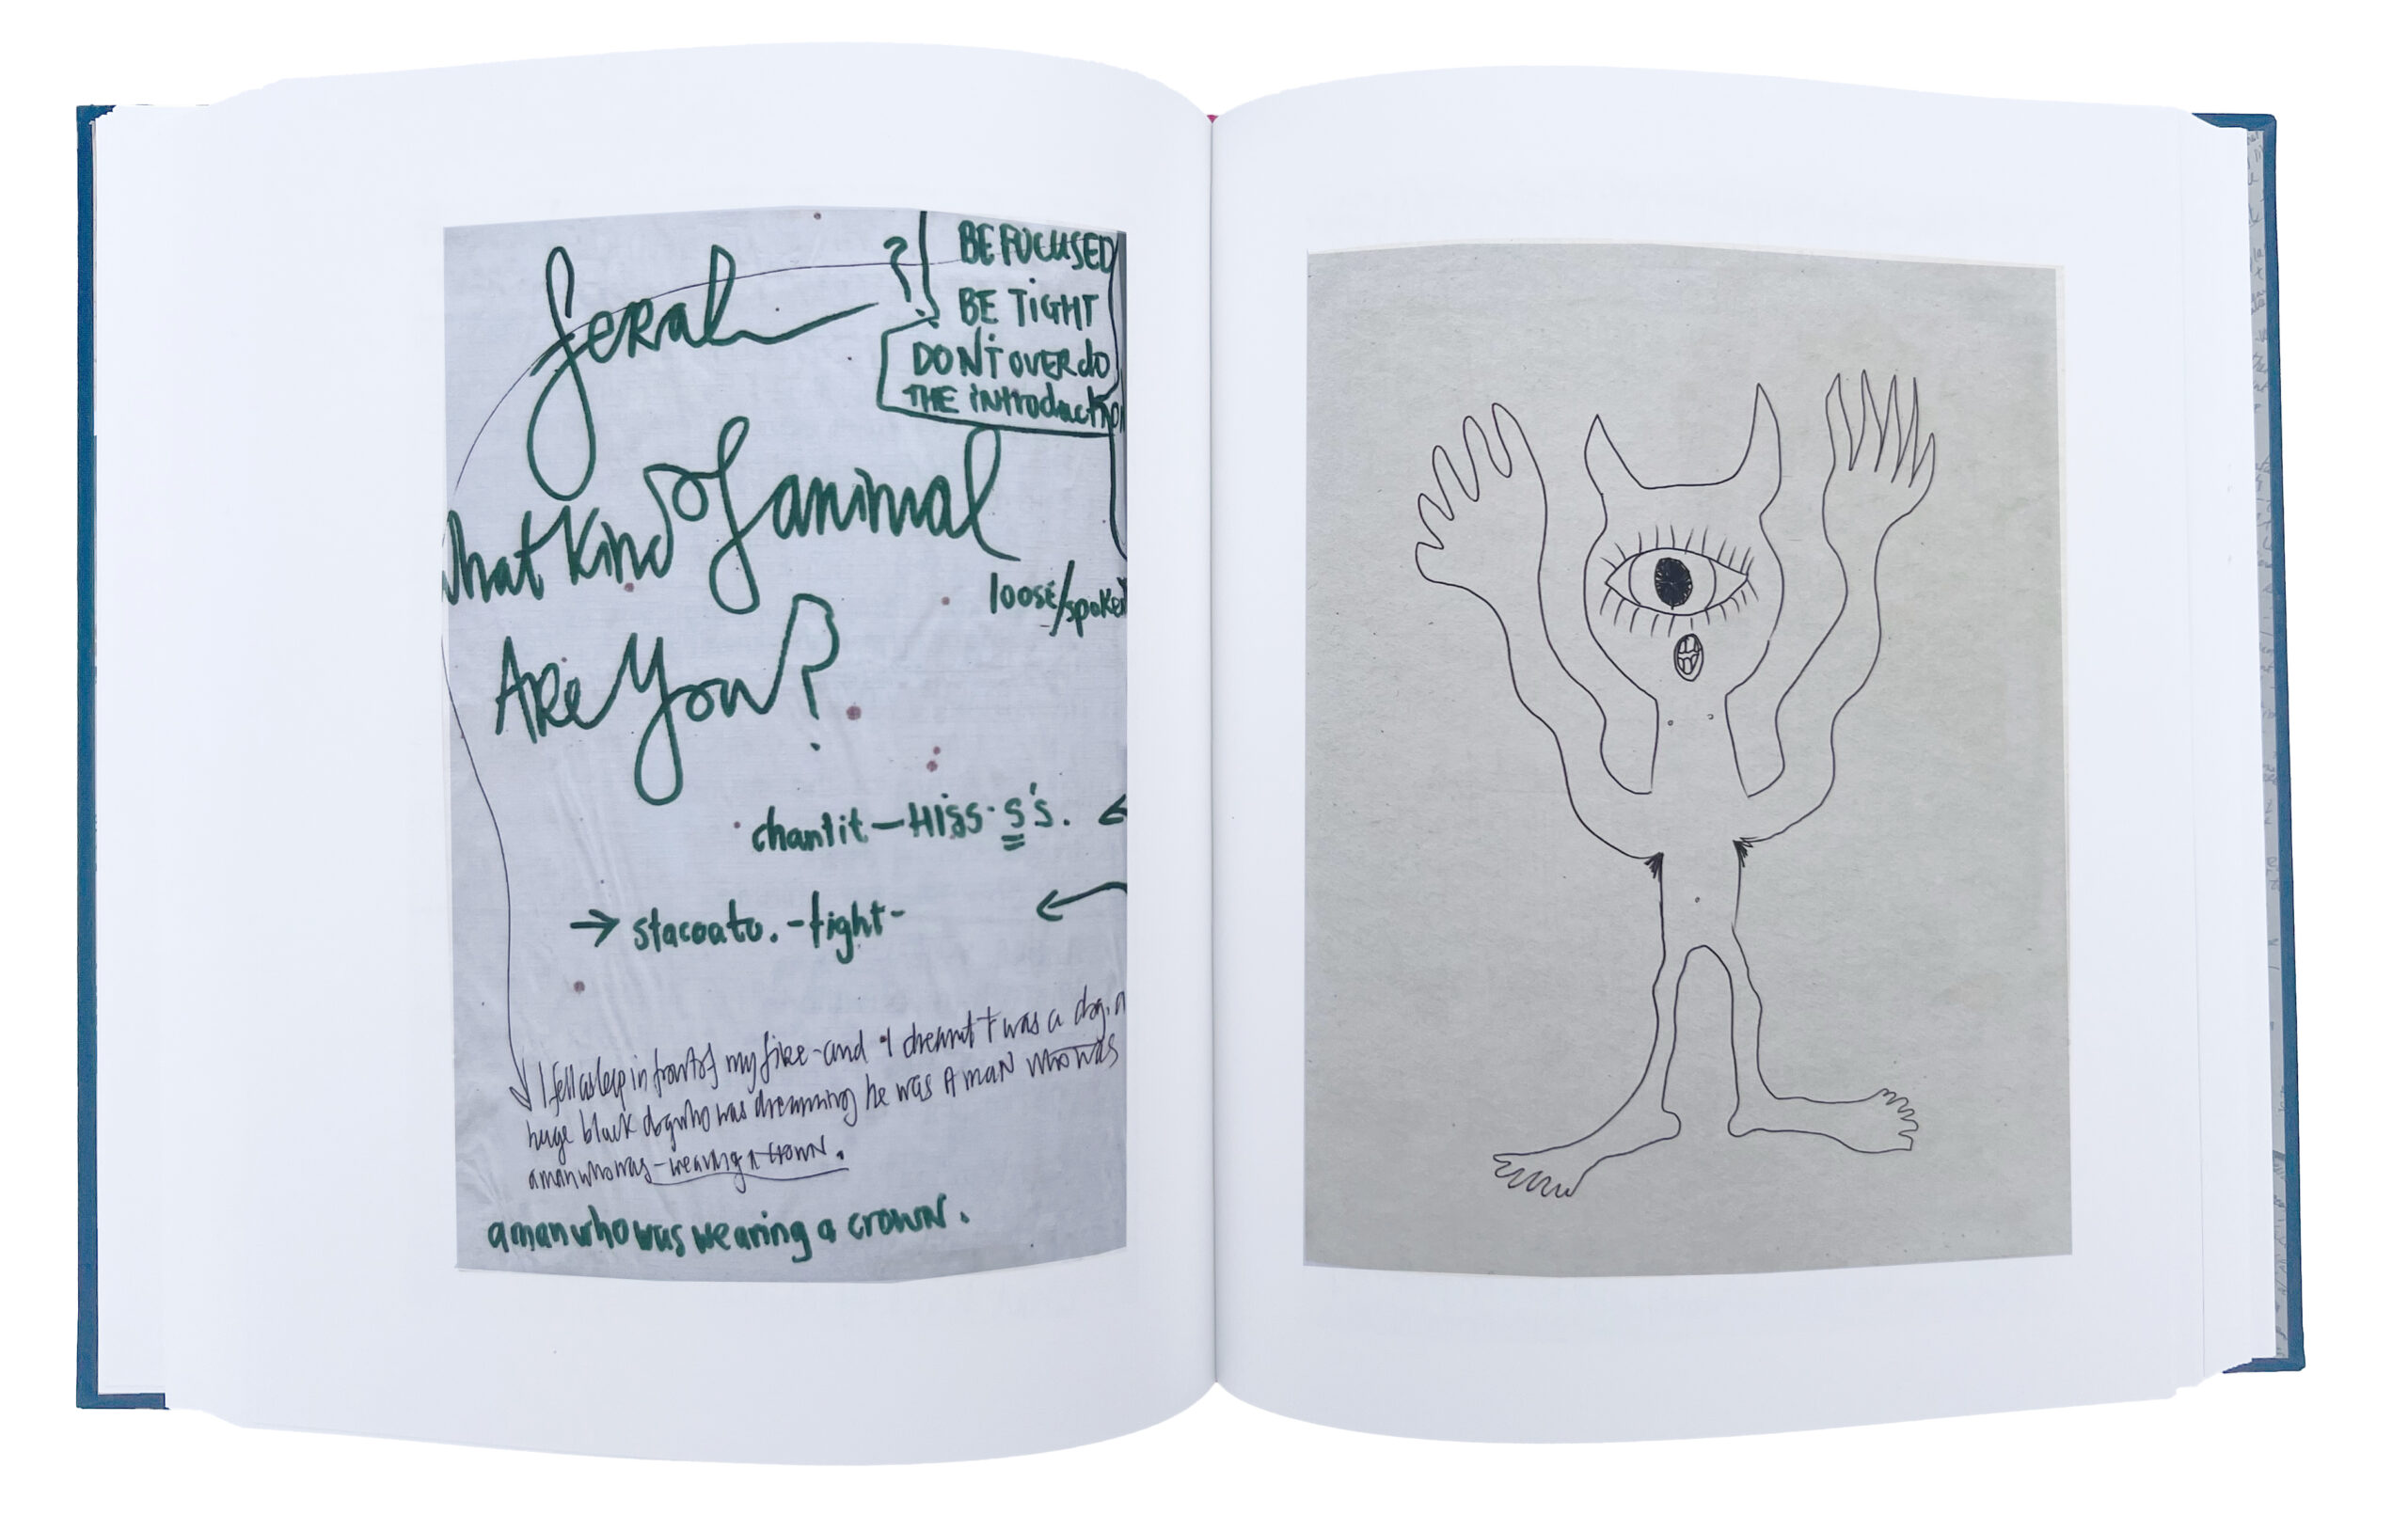 feral ?
BE FOCUSED
BE TiGHT
DON'T OVERdO
THE introduction
What Kind of animal
loose/spoken
Are You?
chantit — Hiss · s's.
→ stacoato. - tight -
I fell asleep in front of my fire - and I dreamt I was a dog. a
huge black dog who was dreaming he was A maN who was
a man who was - wearing a crown.
a man who was wearing a crown.